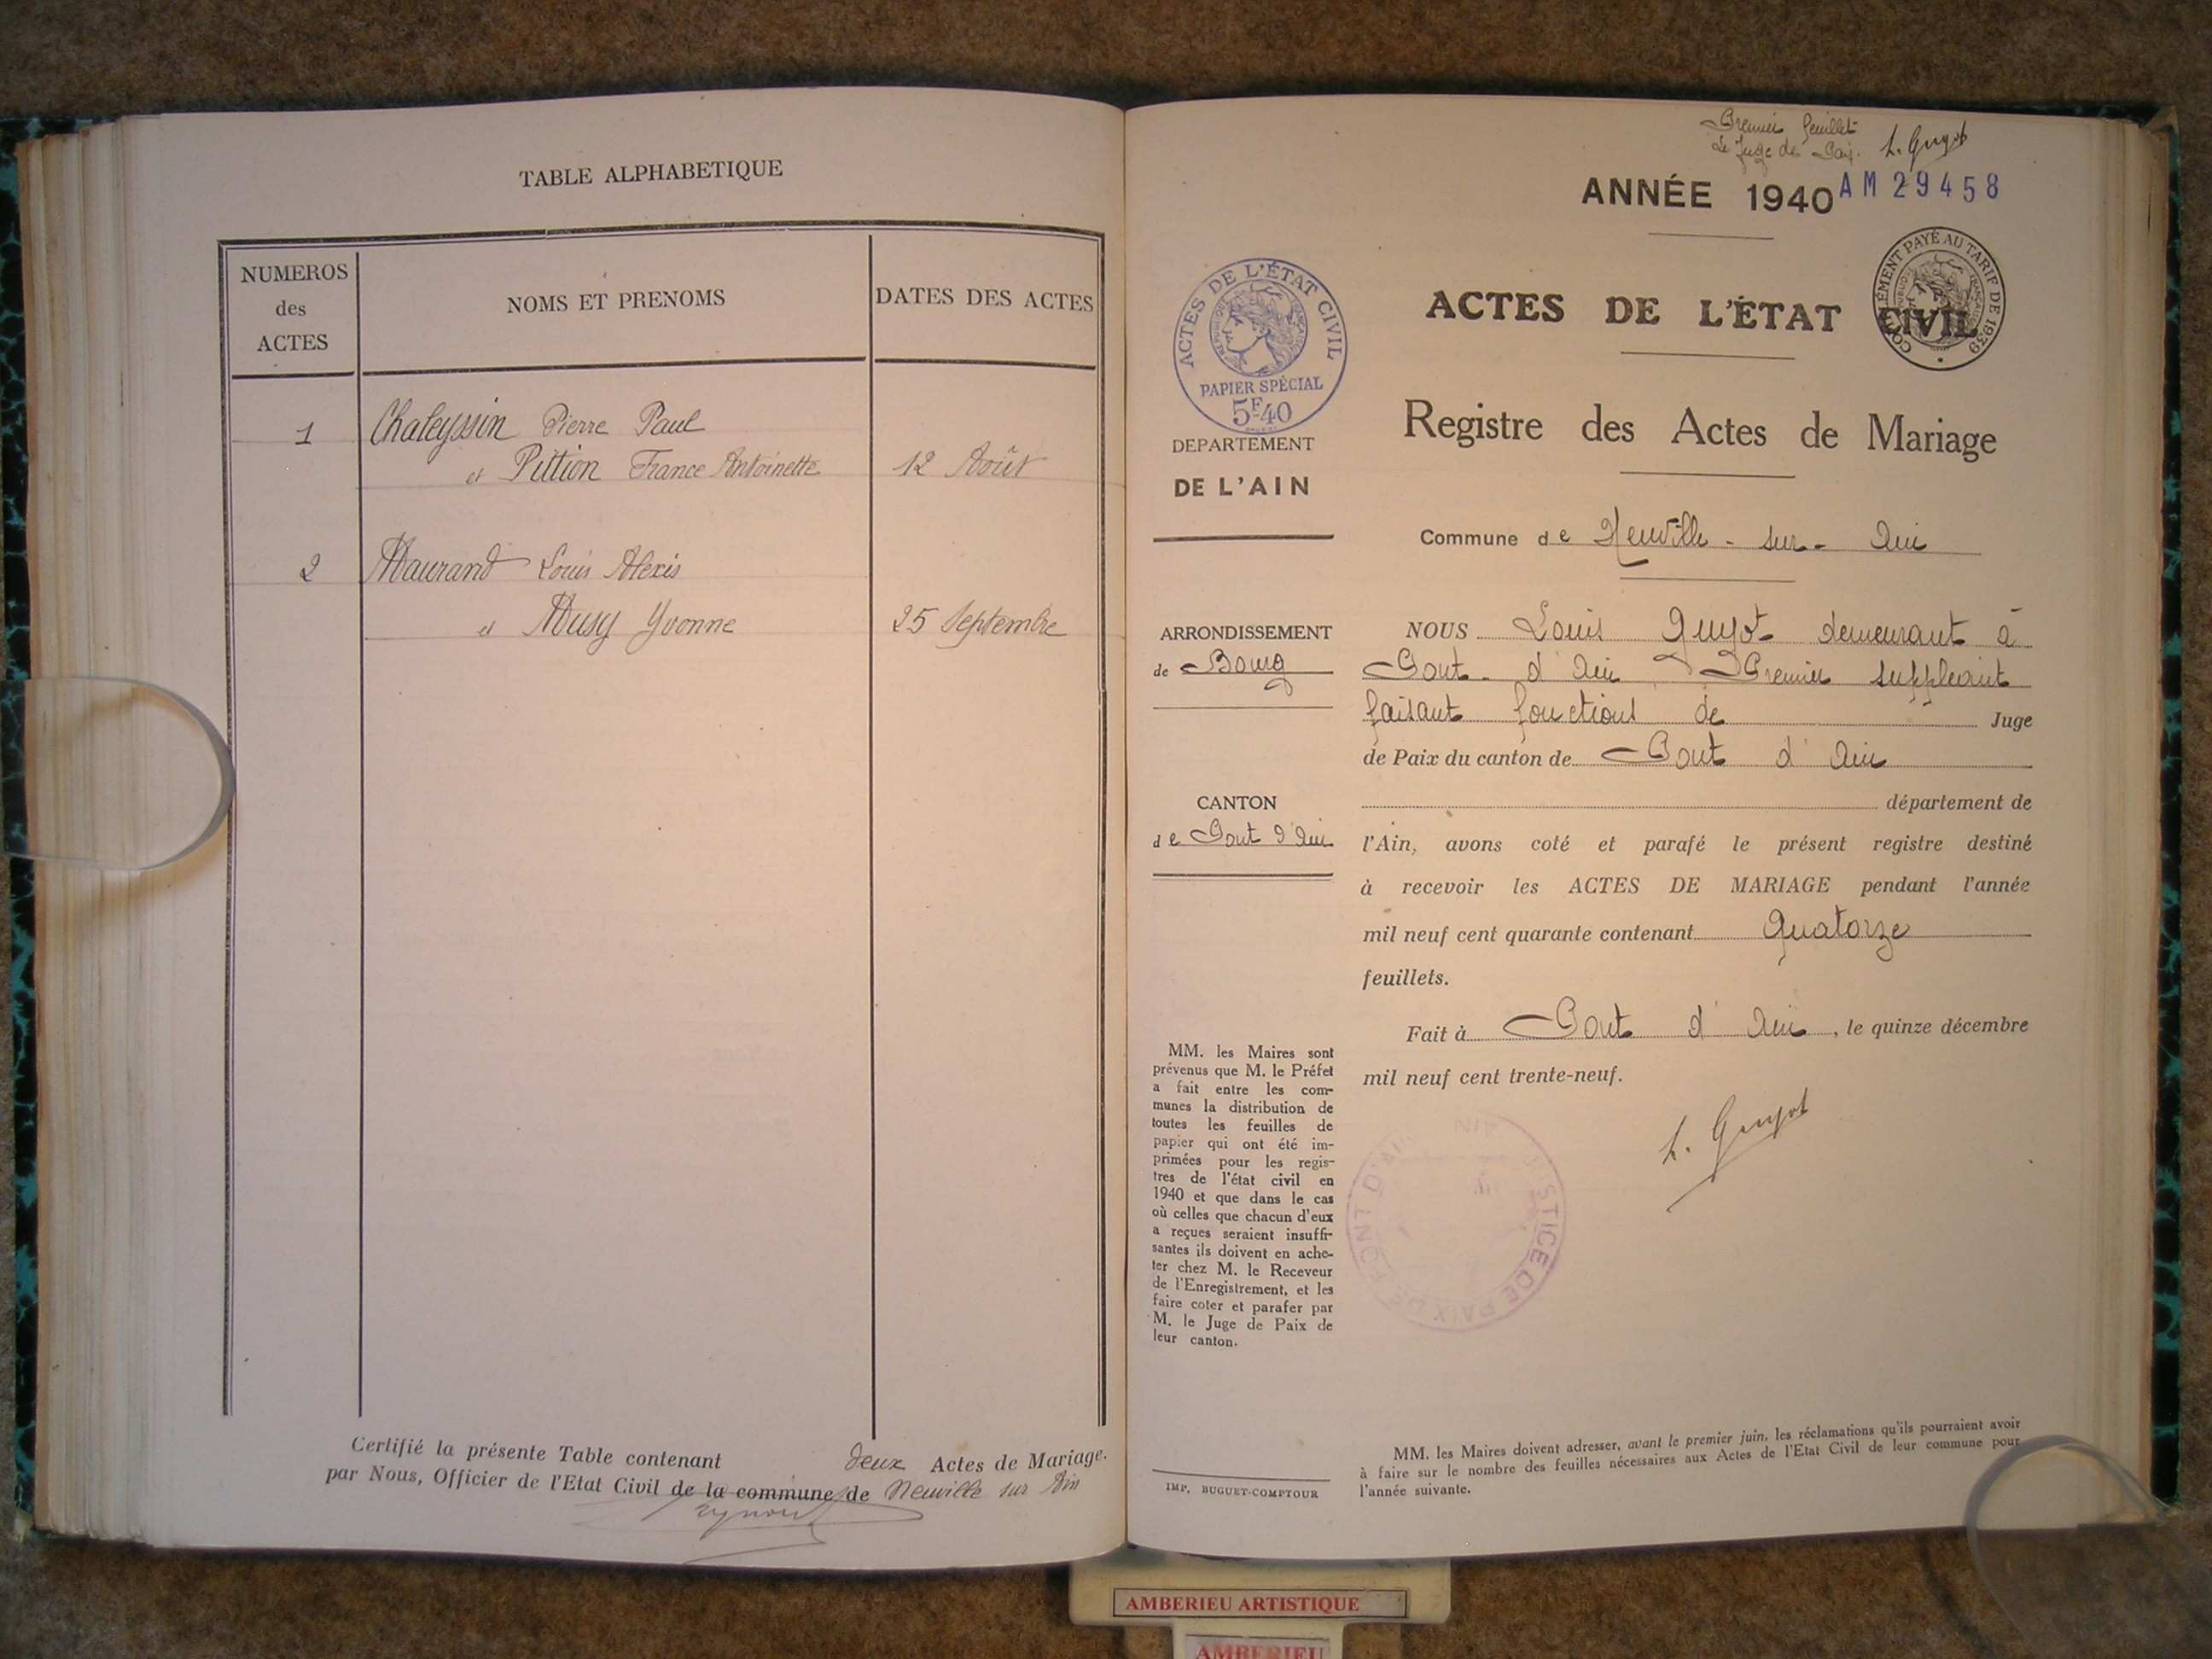 TABLE ALPHABETIQUE
NUMEROS
des
ACTES
NOMS ET PRENOMS
DATES DES ACTES
1
Chaleyssin Pierre Paul
et Pittion France Antoinette
12 Août
2
Maurand Louis Alexis
et Musy Yvonne
25 Septembre
Certifié la présente Table contenant deux Actes de Mariage.
par Nous, Officier de l'Etat Civil de la commune de Neuville sur Ain
Premier feuillet
Le Juge de Paix. L. Guyot
ANNÉE 1940
AM 29458
ACTES DE L'ÉTAT CIVIL
COMPLÉMENT PAYÉ AU TARIF DE 1939
ACTES DE L'ÉTAT CIVIL
PAPIER SPÉCIAL
5F40
DEPARTEMENT
DE L'AIN
Registre des Actes de Mariage
Commune de Neuville - sur - Ain
ARRONDISSEMENT
de Bourg
CANTON
de Pont d'Ain
NOUS Louis Guyot demeurant à
Pont - d'Ain, Premier suppléant
faisant fonctions de Juge
de Paix du canton de Pont d'Ain
département de
l'Ain, avons coté et parafé le présent registre destiné
à recevoir les ACTES DE MARIAGE pendant l'année
mil neuf cent quarante contenant Quatorze
feuillets.
Fait à Pont d'Ain, le quinze décembre
mil neuf cent trente-neuf.
L. Guyot
JUSTICE DE PAIX DE PONT D'AIN
AIN
MM. les Maires sont
prévenus que M. le Préfet
a fait entre les com-
munes la distribution de
toutes les feuilles de
papier qui ont été im-
primées pour les regis-
tres de l'état civil en
1940 et que dans le cas
où celles que chacun d'eux
a reçues seraient insuffi-
santes ils doivent en ache-
ter chez M. le Receveur
de l'Enregistrement, et les
faire coter et parafer par
M. le Juge de Paix de
leur canton.
IMP. BUGUET-COMPTOUR
MM. les Maires doivent adresser, avant le premier juin, les réclamations qu'ils pourraient avoir
à faire sur le nombre des feuilles nécessaires aux Actes de l'Etat Civil de leur commune pour
l'année suivante.
AMBERIEU ARTISTIQUE
AMBERIEU